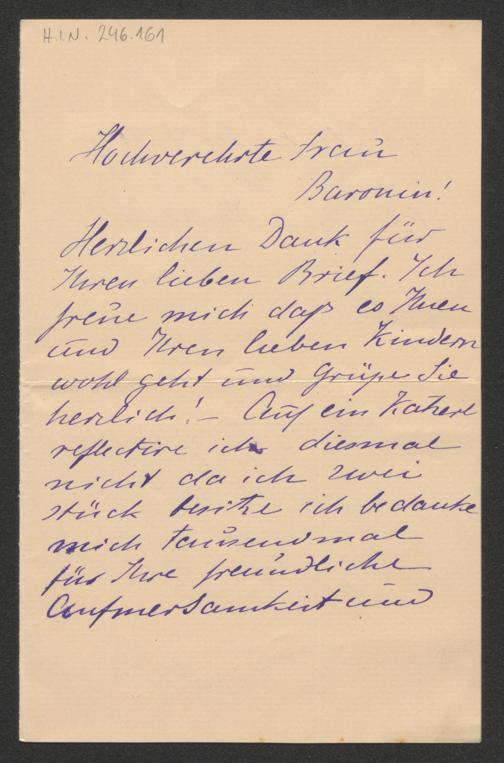 H.I.N. 246.161
Hochverehrte Frau
Baronin!
Herzlichen Dank für
Ihren lieben Brief. Ich
freue mich daß es Ihnen
und Ihren lieben Kindern
wohl geht und Grüße Sie
herzlich! – Auf ein Katzerl
reflectire ich diesmal
nicht da ich zwei
stück besitze ich bedanke
mich tausendmal
für Ihre freundliche
Aufmersamkeit und